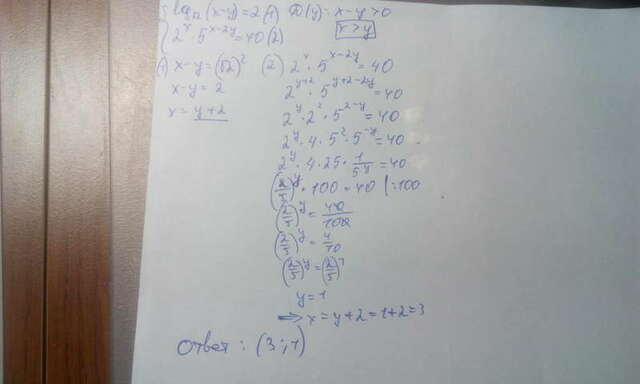 { log√2 (x-y) = 2 (1) D(y): x-y>0
2^x · 5^(x-2y) = 40 (2) x>y
(1) x-y = (√2)^2 (2) 2^x · 5^(x-2y) = 40
x-y = 2 2^(y+2) · 5^(y+2-2y) = 40
x = y+2 2^y · 2^2 · 5^(2-y) = 40
2^y · 4 · 5^2 · 5^(-y) = 40
2^y · 4 · 25 · 1/5^y = 40
(2/5)^y · 100 = 40 |:100
(2/5)^y = 40/100
(2/5)^y = 4/10
(2/5)^y = (2/5)^1
y = 1
⇒ x = y+2 = 1+2 = 3
Ответ: (3; 1)